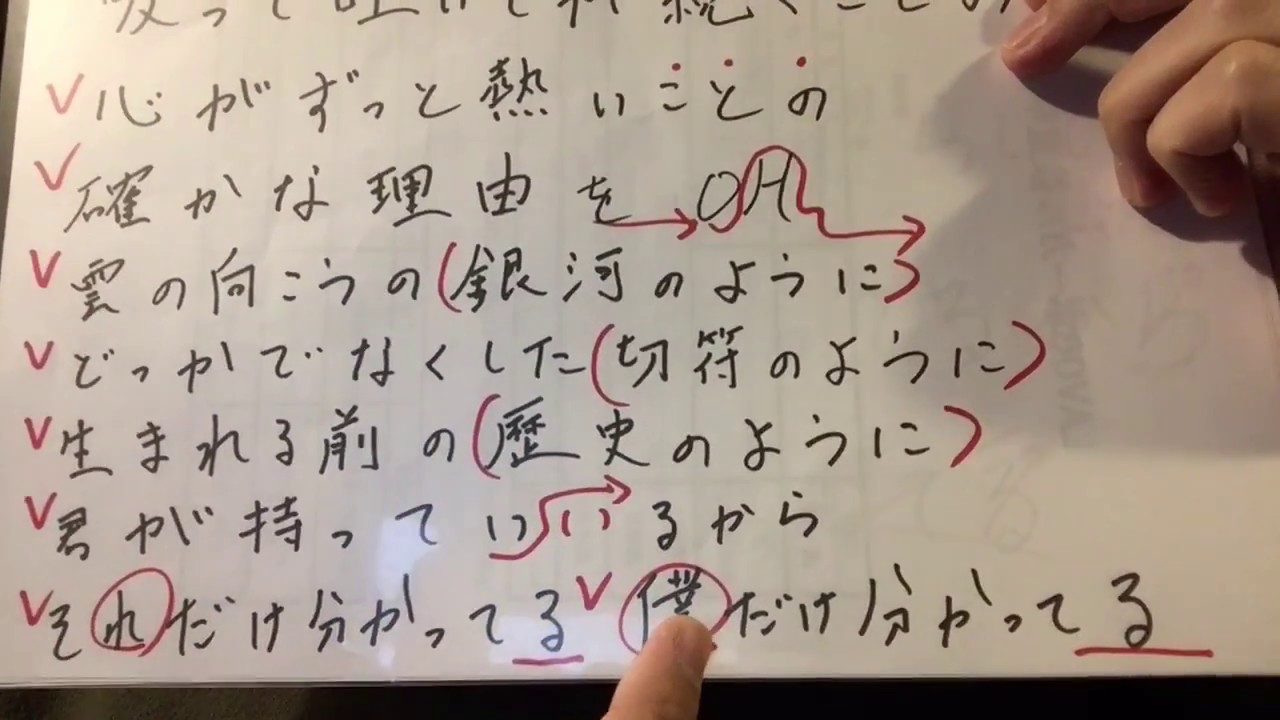 吸って吐いてが続くことの
心がずっと熱いことの
確かな理由を OH
雲の向こうの(銀河のように)
どっかでなくした(切符のように)
生まれる前の(歴史のように)
君が持っていいるから
それだけ分かってる 僕だけ分かってる